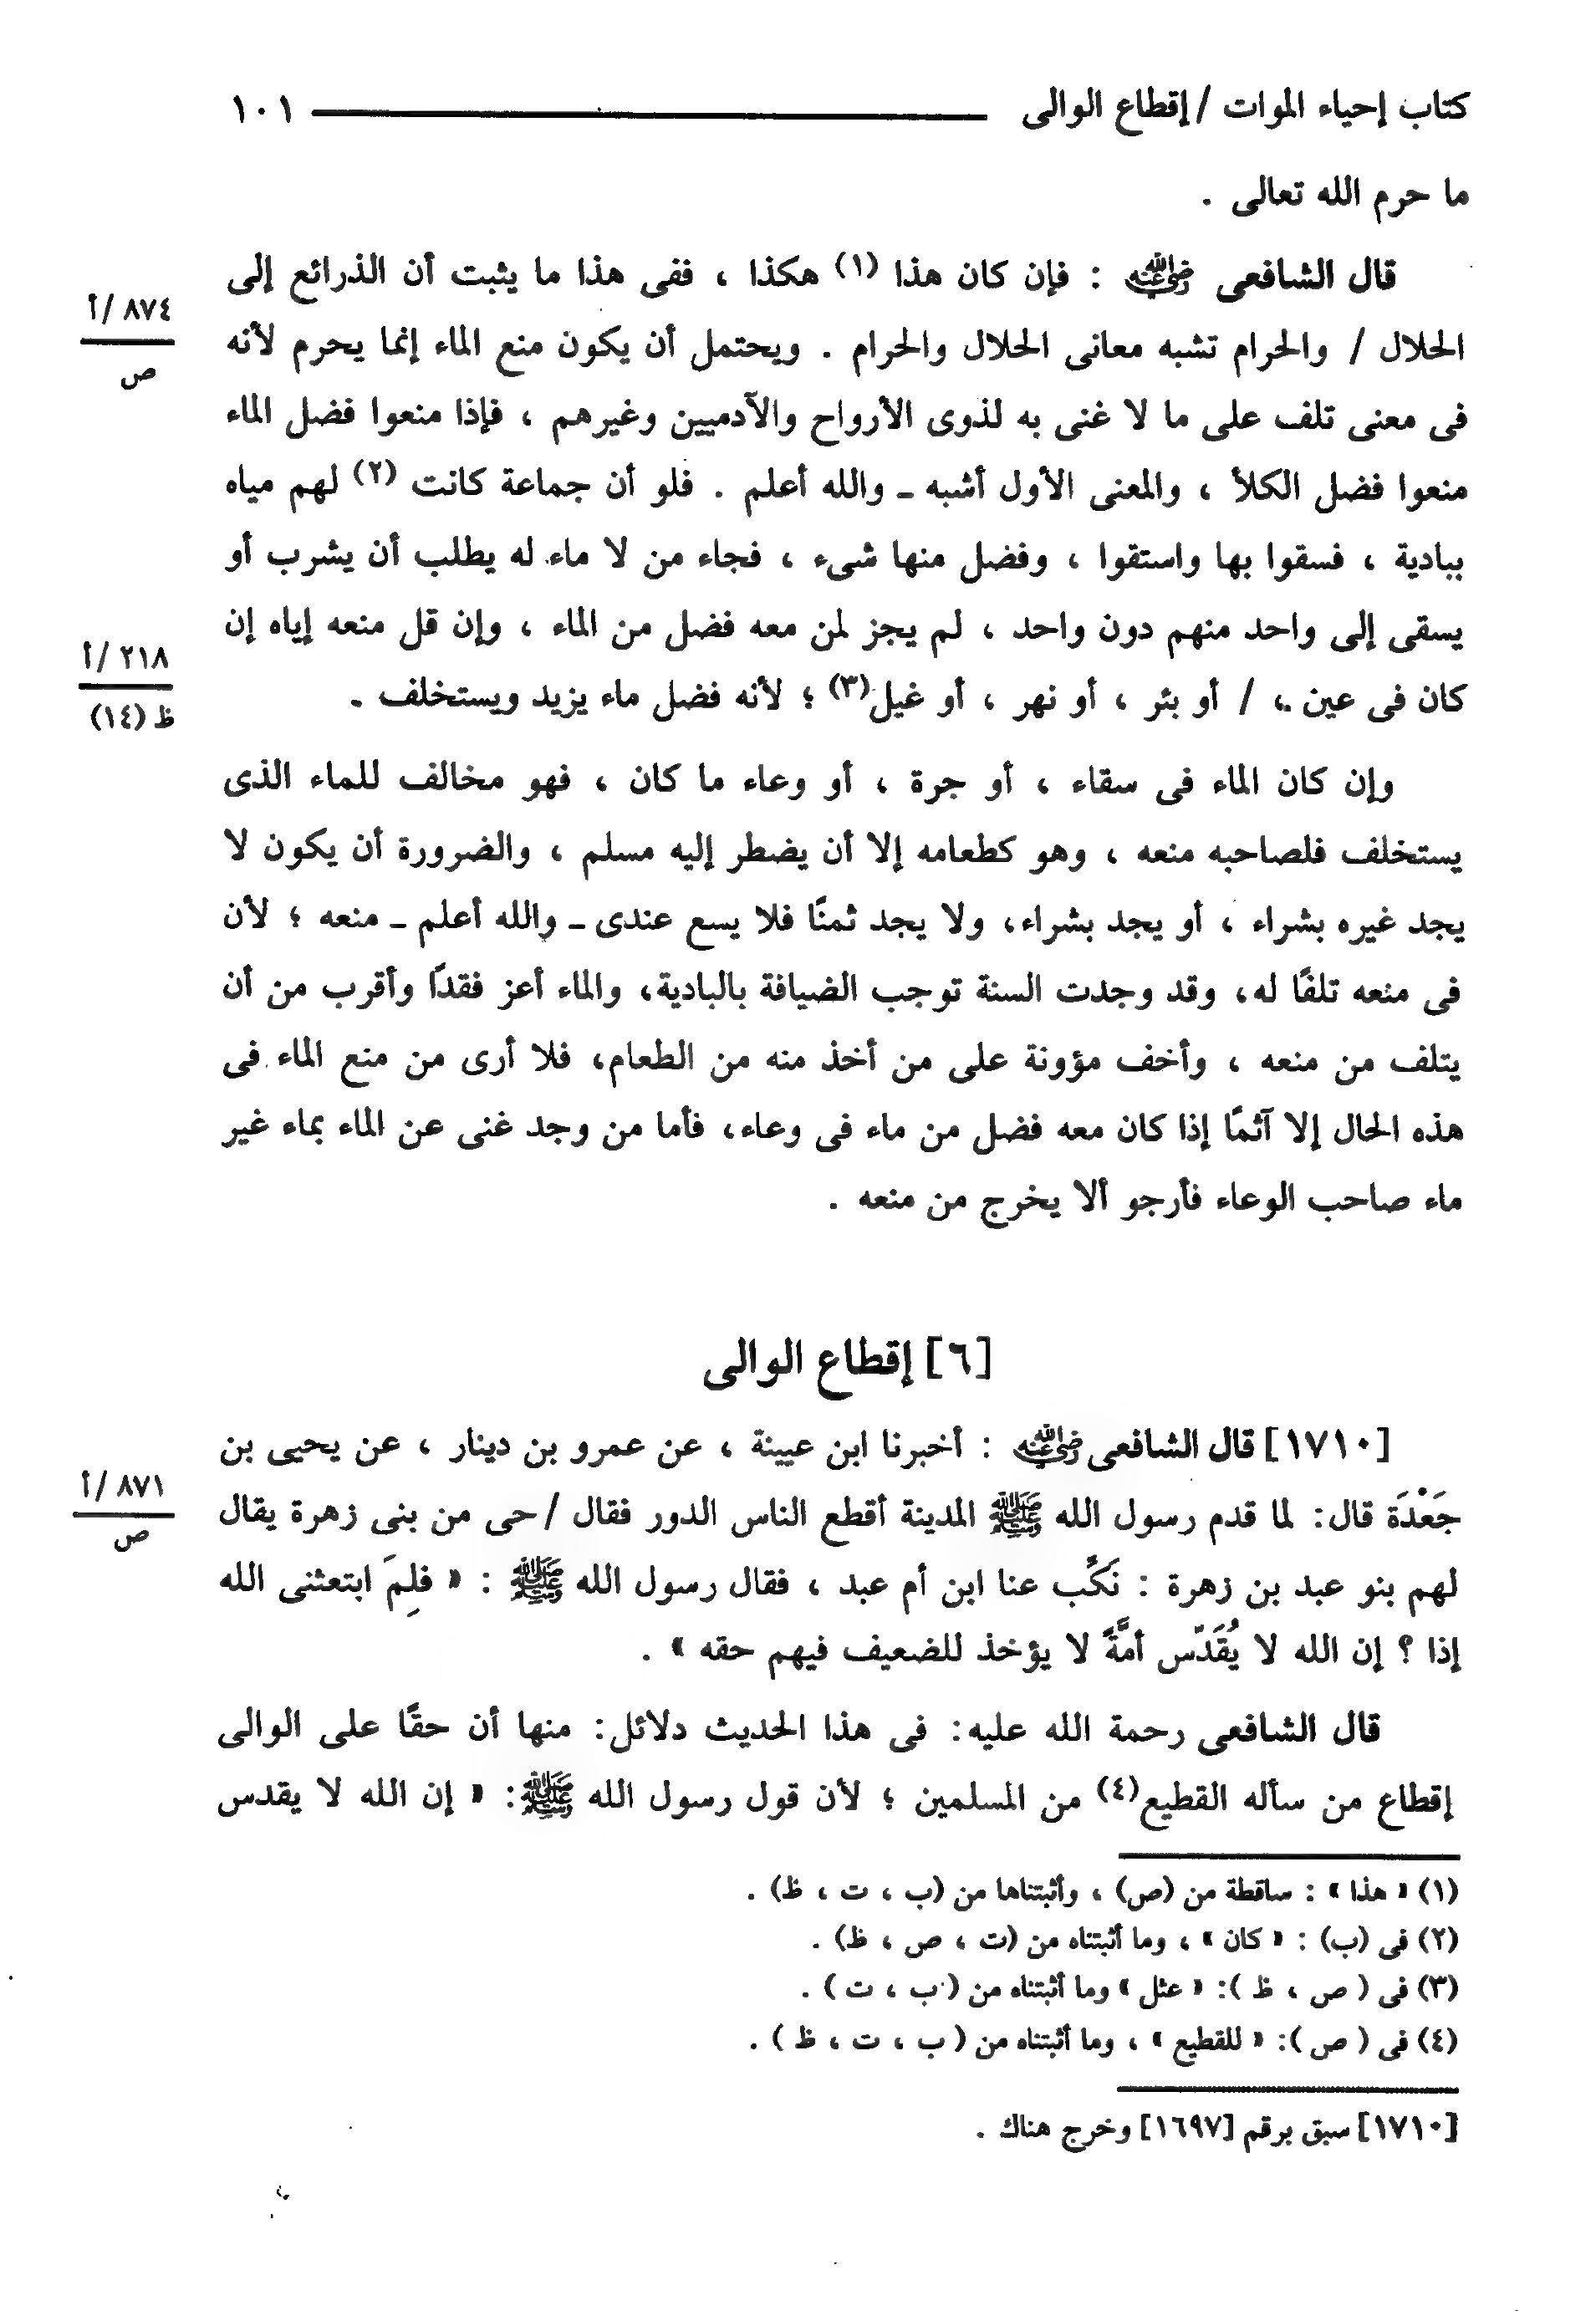 كتاب إحياء الموات / إقطاع الوالى ١٠١
ما حرم الله تعالى .
قال الشافعى رضي الله عنه : فإن كان هذا (١) هكذا ، ففى هذا ما يثبت أن الذرائع إلى
٨٧٤ / أ
ص
الحلال / والحرام تشبه معانى الحلال والحرام . ويحتمل أن يكون منع الماء إنما يحرم لأنه
فى معنى تلف على ما لا غنى به لذوى الأرواح والآدميين وغيرهم ، فإذا منعوا فضل الماء
منعوا فضل الكلأ ، والمعنى الأول أشبه ـ والله أعلم . فلو أن جماعة كانت (٢) لهم مياه
ببادية ، فسقوا بها واستقوا ، وفضل منها شىء ، فجاء من لا ماء له يطلب أن يشرب أو
يسقى إلى واحد منهم دون واحد ، لم يجز لمن معه فضل من الماء ، وإن قل منعه إياه إن
٢١٨ / أ
ظ (١٤)
كان فى عين ، / أو بئر ، أو نهر ، أو غيل(٣) ؛ لأنه فضل ماء يزيد ويستخلف .
وإن كان الماء فى سقاء ، أو جرة ، أو وعاء ما كان ، فهو مخالف للماء الذى
يستخلف فلصاحبه منعه ، وهو كطعامه إلا أن يضطر إليه مسلم ، والضرورة أن يكون لا
يجد غيره بشراء ، أو يجد بشراء، ولا يجد ثمنًا فلا يسع عندى ـ والله أعلم ـ منعه ؛ لأن
فى منعه تلفًا له، وقد وجدت السنة توجب الضيافة بالبادية، والماء أعز فقدًا وأقرب من أن
يتلف من منعه ، وأخف مؤونة على من أخذ منه من الطعام، فلا أرى من منع الماء فى
هذه الحال إلا آثمًا إذا كان معه فضل من ماء فى وعاء، فأما من وجد غنى عن الماء بماء غير
ماء صاحب الوعاء فأرجو ألا يخرج من منعه .
[٦] إقطاع الوالى
[١٧١٠] قال الشافعى رضي الله عنه : أخبرنا ابن عيينة ، عن عمرو بن دينار ، عن يحيى بن
٨٧١ / أ
ص
جَعْدَة قال: لما قدم رسول الله ﷺ المدينة أقطع الناس الدور فقال / حى من بنى زهرة يقال
لهم بنو عبد بن زهرة : نَكِّب عنا ابن أم عبد ، فقال رسول الله ﷺ : « فلِمَ ابتعثنى الله
إذا ؟ إن الله لا يُقَدّس أمَّةً لا يؤخذ للضعيف فيهم حقه » .
قال الشافعى رحمة الله عليه: فى هذا الحديث دلائل: منها أن حقًا على الوالى
إقطاع من سأله القطيع(٤) من المسلمين ؛ لأن قول رسول الله ﷺ: « إن الله لا يقدس
(١) « هذا » : ساقطة من (ص) ، وأثبتناها من (ب ، ت ، ظ) .
(٢) فى (ب) : « كان » ، وما أثبتناه من (ت ، ص ، ظ) .
(٣) فى ( ص ، ظ ): « عثل » وما أثبتناه من ( ب ، ت ) .
(٤) فى ( ص ): « للقطيع » ، وما أثبتناه من ( ب ، ت ، ظ ) .
[١٧١٠] سبق برقم [١٦٩٧] وخرج هناك .